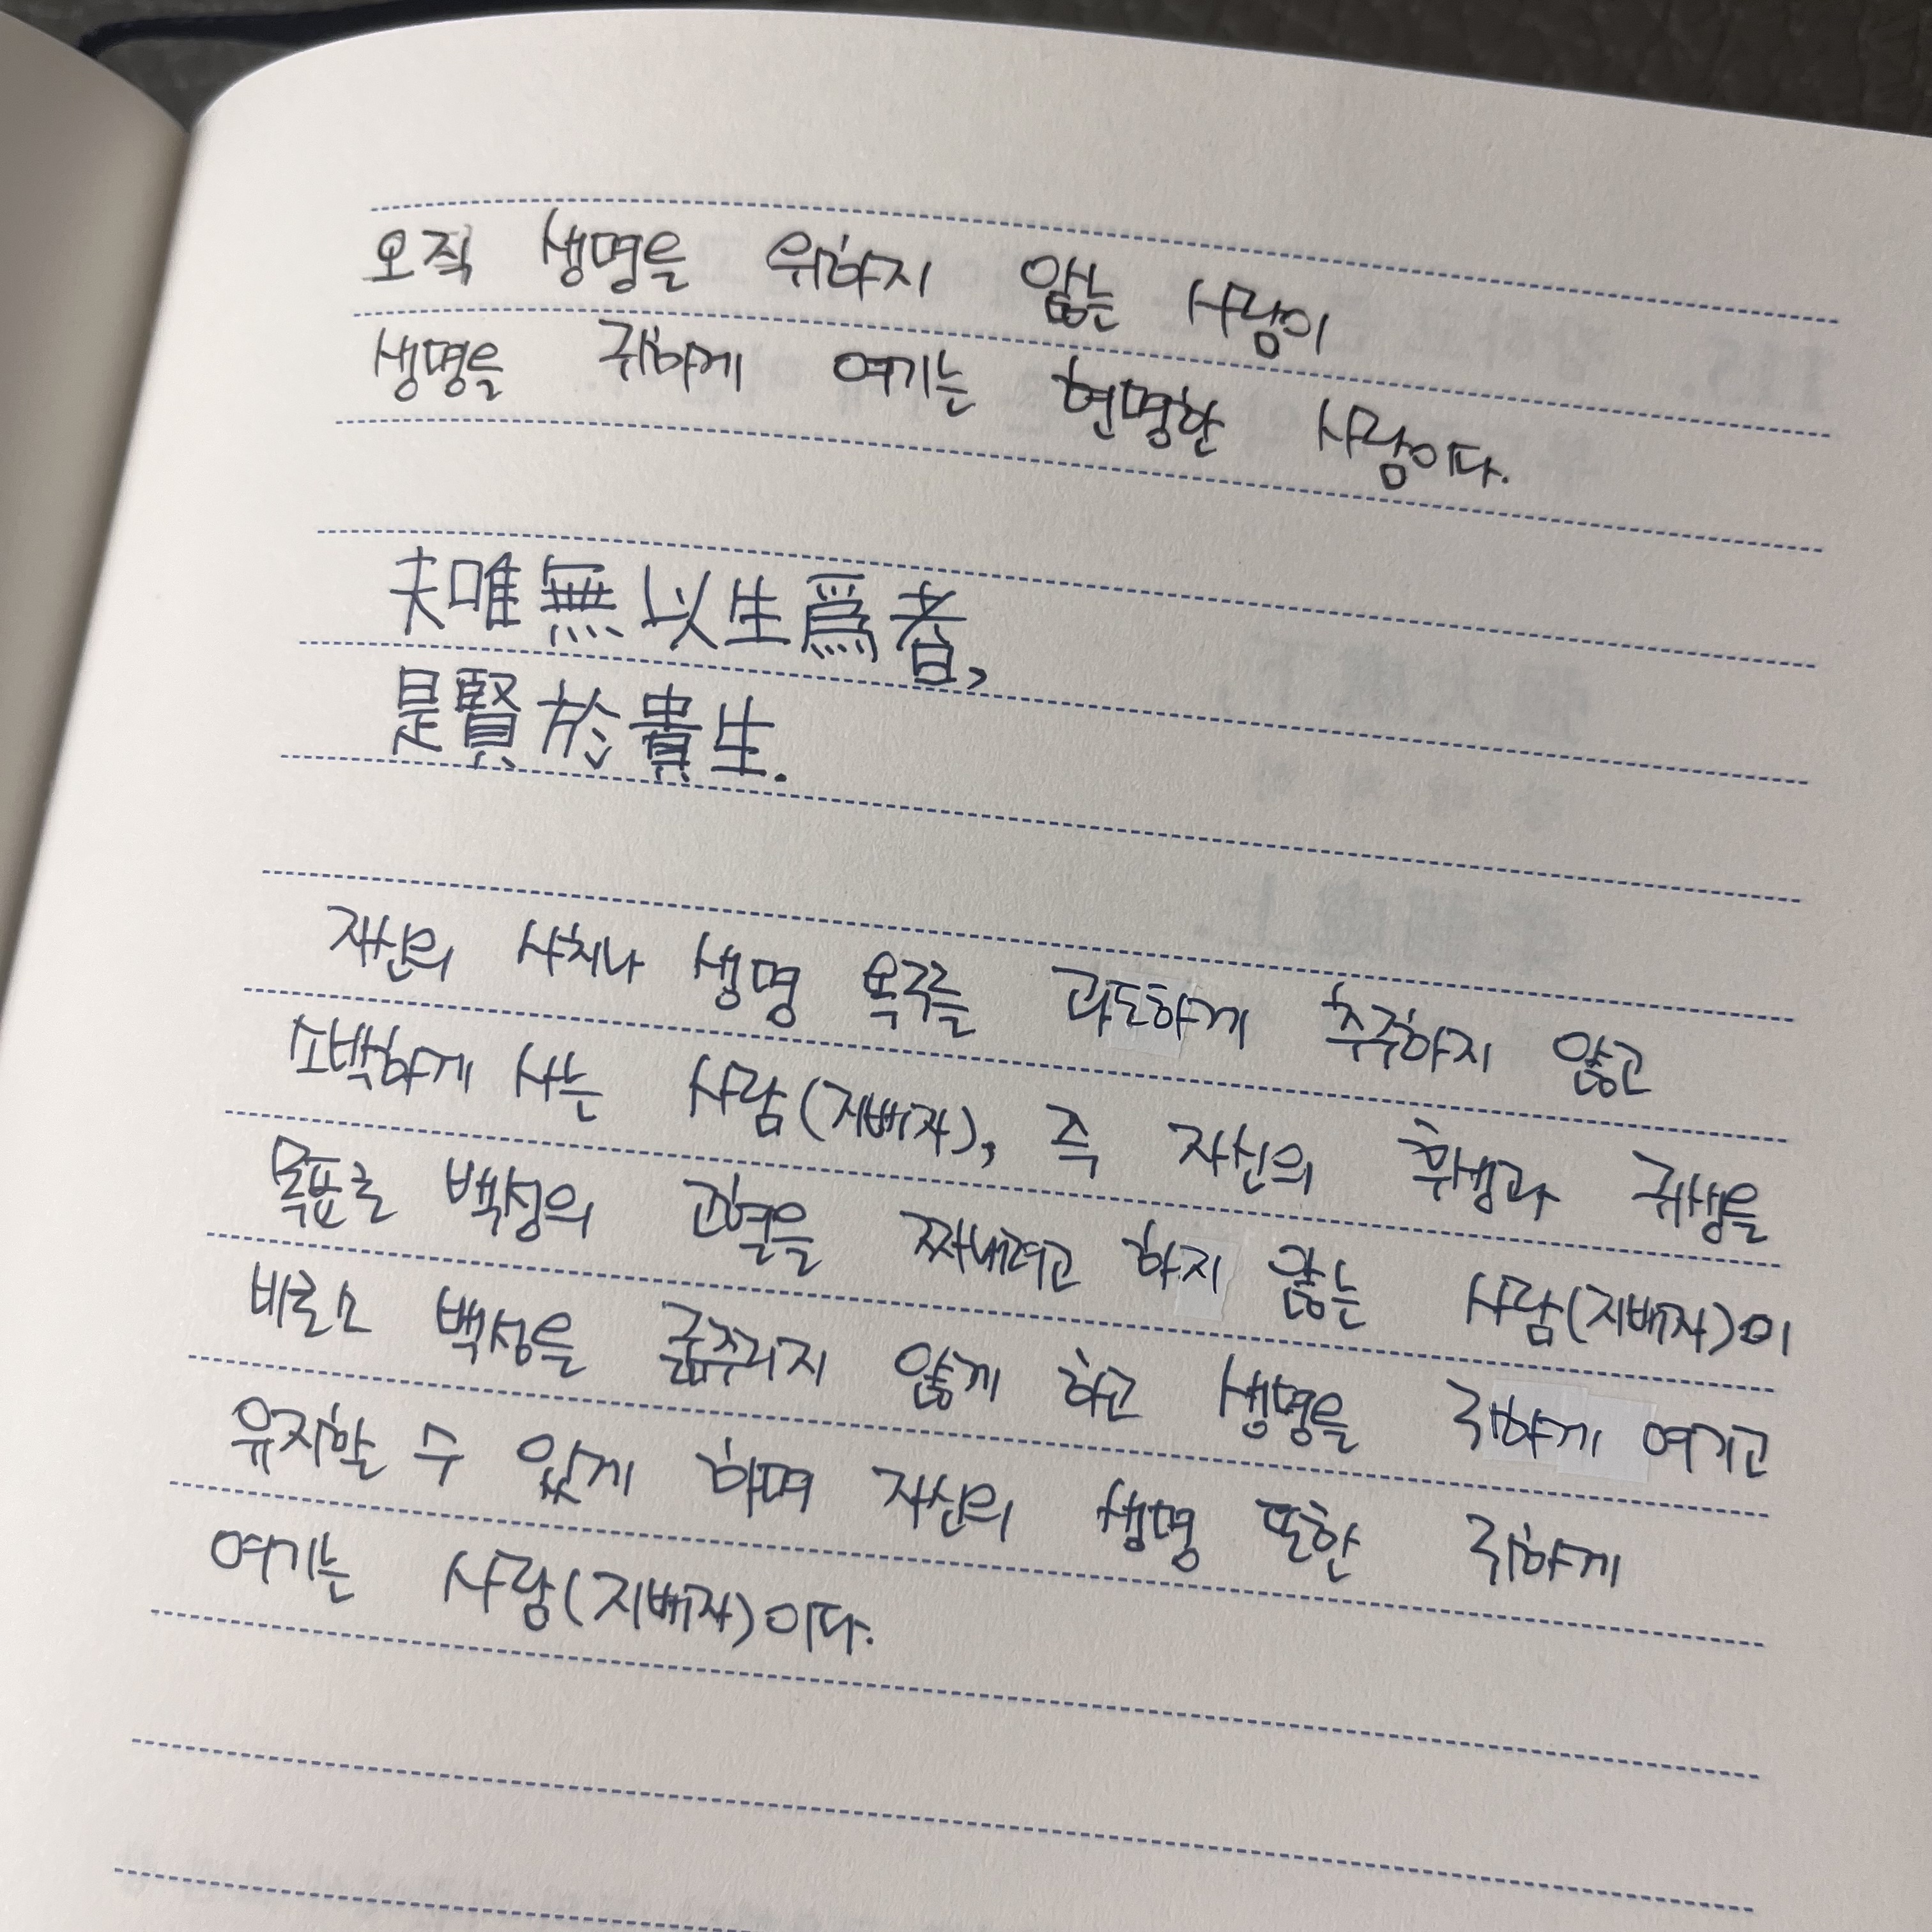 오직 생명을 위하지 않는 사람이
생명을 귀하게 여기는 현명한 사람이다.
夫唯無以生爲者,
是賢於貴生.
자신의 사치나 생명 욕구를 과도하게 추구하지 않고
소박하게 사는 사람(지배자), 즉 자신의 후생과 귀생을
목표로 백성의 고혈을 짜내려고 하지 않는 사람(지배자)이
비로소 백성을 굶주리지 않게 하고 생명을 귀하게 여기고
유지할 수 있게 하며 자신의 생명 또한 귀하게
여기는 사람(지배자)이다.